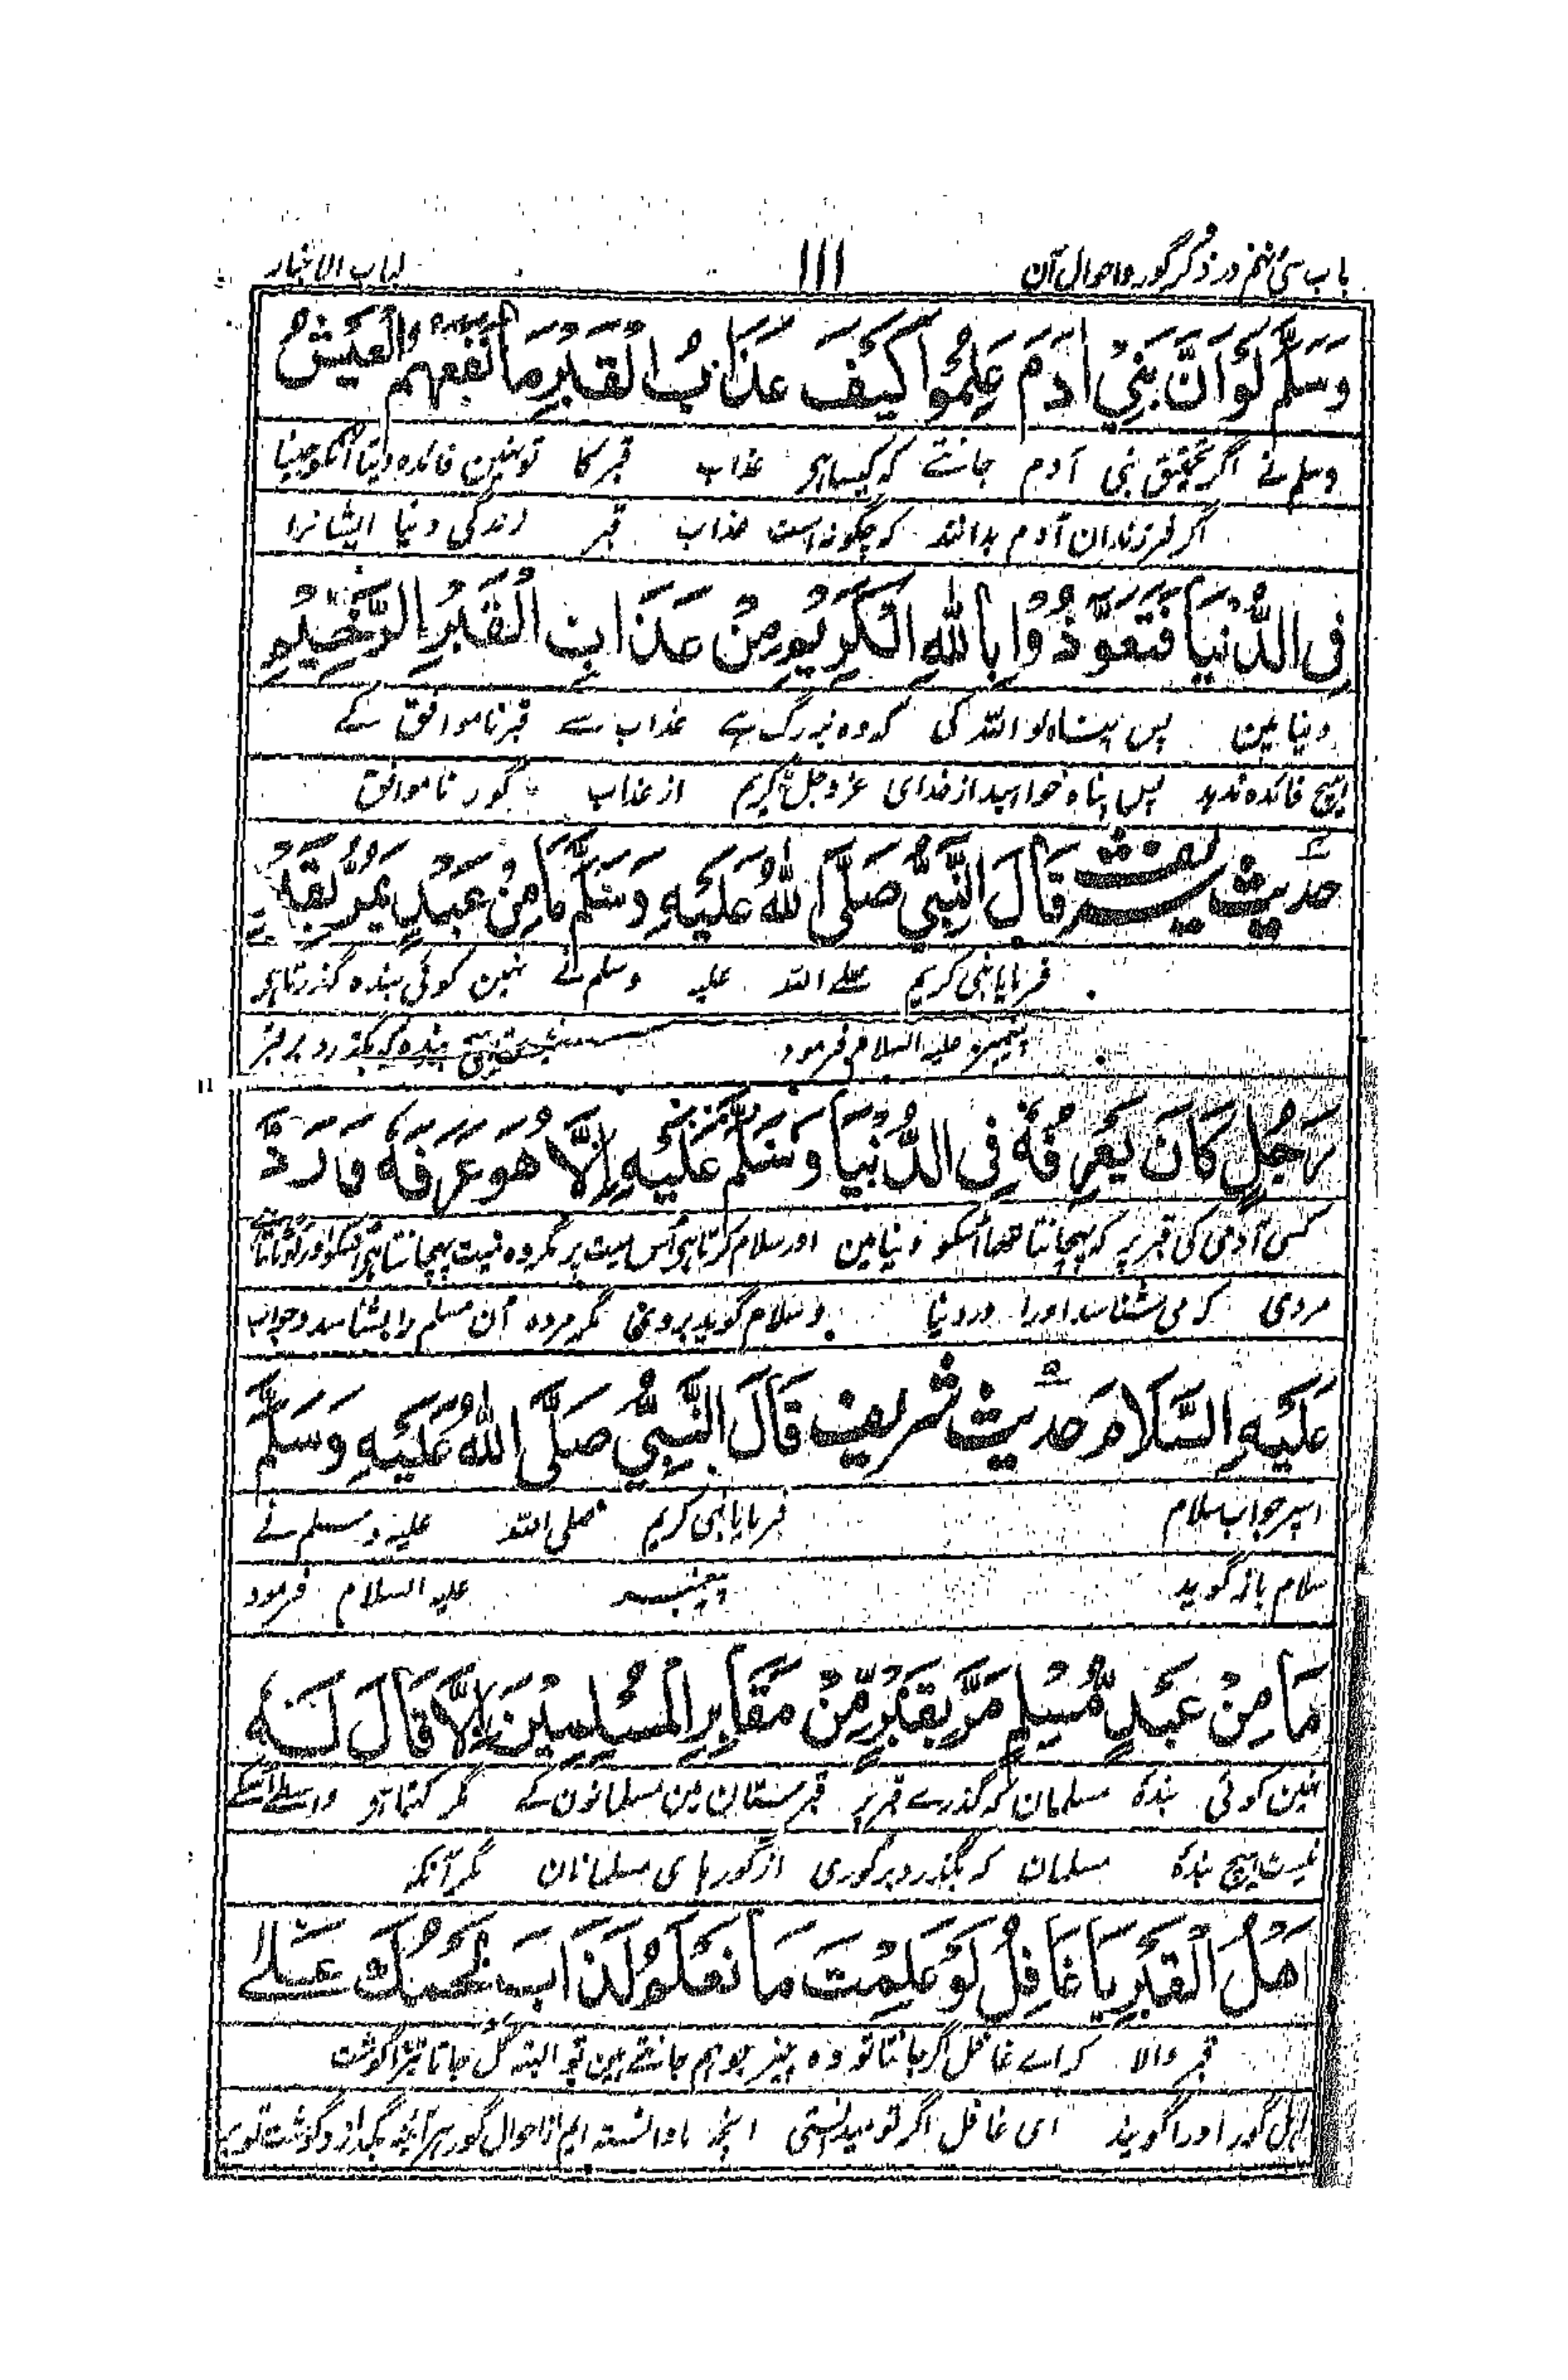 باب سی نهم در ذکر گور و احوال آن ١١١ لباب الاخبار
وَسَلَّمَ لَوْ اَنَّ بَنِیْ اٰدَمَ عَلِمُوْا کَیْفَ عَذَابُ الْقَبْرِ مَا نَفَعَهُمُ الْعَیْشُ
وسلم نے اگر تحقیق بنی آدم جانتے کہ کیسا ہی عذاب قبر کا تو نہین فائدہ دیتا انکو جینا
اگر فرزندان آدم بدانند کہ چگونہ است عذاب قبر زندگی دنیا ایشانرا
فِی الدُّنْیَا فَتَعَوَّذُوْا بِاللهِ الْکَرِیْمِ مِنْ عَذَابِ الْقَبْرِ الْوَخِیْمِ
دنیا مین پس پناہ لو اللہ کی کہ وہ بزرگ ہے عذاب سے قبر ناموافق کے
ہیچ فائدہ ندہد پس پناہ خواہید از خدای عزوجل کریم از عذاب گور ناموافق
حدیث شریف قَالَ النَّبِیُّ صَلَّی اللهُ عَلَیْهِ وَسَلَّمَ مَا مِنْ عَبْدٍ یَمُرُّ بِقَبْرِ
فرمایا نبی کریم صلے اللہ علیہ وسلم نے نہین کوئی بندہ گذرتا ہی
پیغمبر علیہ السلام فرمود نیست ہیچ بندہ کہ بگذرد بر قبر
رَجُلٍ کَانَ یَعْرِفُهٗ فِی الدُّنْیَا وَسَلَّمَ عَلَیْهِ اِلَّا هُوَ عَرَفَهٗ وَرَدَّ
کسی آدمی کی قبر پر کہ پہچانتا تھا اسکو دنیا مین اور سلام کرتا ہی اس میت پر مگر وہ میت پہچانتا ہی اسکو اور
مردی کہ می شناسد اورا در دنیا و سلام گوید بروی مگر مردہ آن مسلم را بشناسد و جواب
عَلَیْهِ السَّلَامَ حدیث شریف قَالَ النَّبِیُّ صَلَّی اللهُ عَلَیْهِ وَسَلَّمَ
اسپر جواب سلام فرمایا نبی کریم صلی اللہ علیہ وسلم نے
سلام باز گوید پیغمبر علیہ السلام فرمود
مَا مِنْ عَبْدٍ مُّسْلِمٍ مَرَّ بِقَبْرٍ مِّنْ مَقَابِرِ الْمُسْلِمِیْنَ اِلَّا قَالَ لَهٗ
نہین کوئی بندہ مسلمان کہ گذرے قبر پر قبرستان مین مسلمانون کے مگر کہتا ہی واسطے اسکے
نیست ہیچ بندہ مسلمان کہ بگذرد بر گوری از گورہای مسلمانان مگر آنکہ
اَهْلُ الْقَبْرِ یَا غَافِلُ لَوْ عَلِمْتَ مَا نَعْلَمُ لَذَابَ لَحْمُكَ عَلٰے
قبر والا کہ اے غافل اگر جانتا تو وہ چیز جو ہم جانتے ہین تو البتہ گل جاتا تیرا گوشت
اہل گور اورا گویند ای غافل اگر تو میدانستی انچہ ما دانستہ ایم از احوال گور ہر آئینہ بگدازد گوشت تو بر